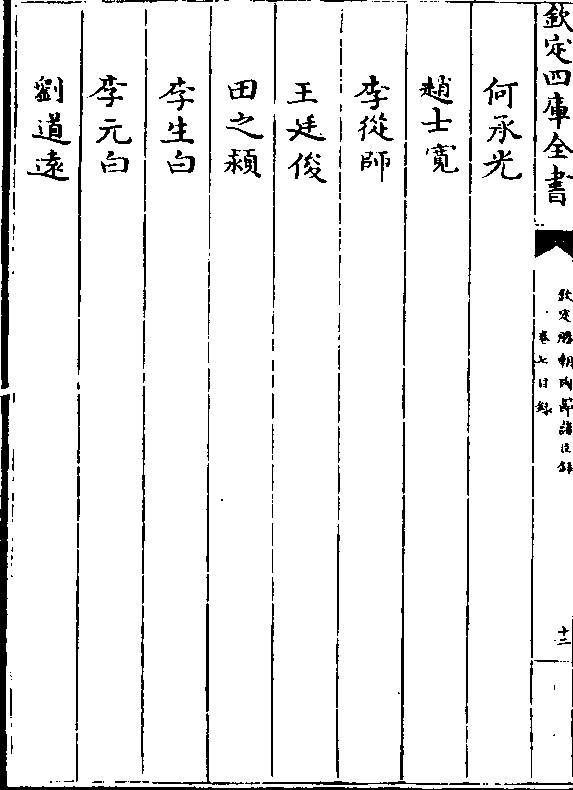 欽定四庫全書
欽定勝朝殉節諸臣錄
卷七目錄
十二
何承光
趙士寛
李從師
王廷俊
田之潁
李生白
李元白
劉道遠